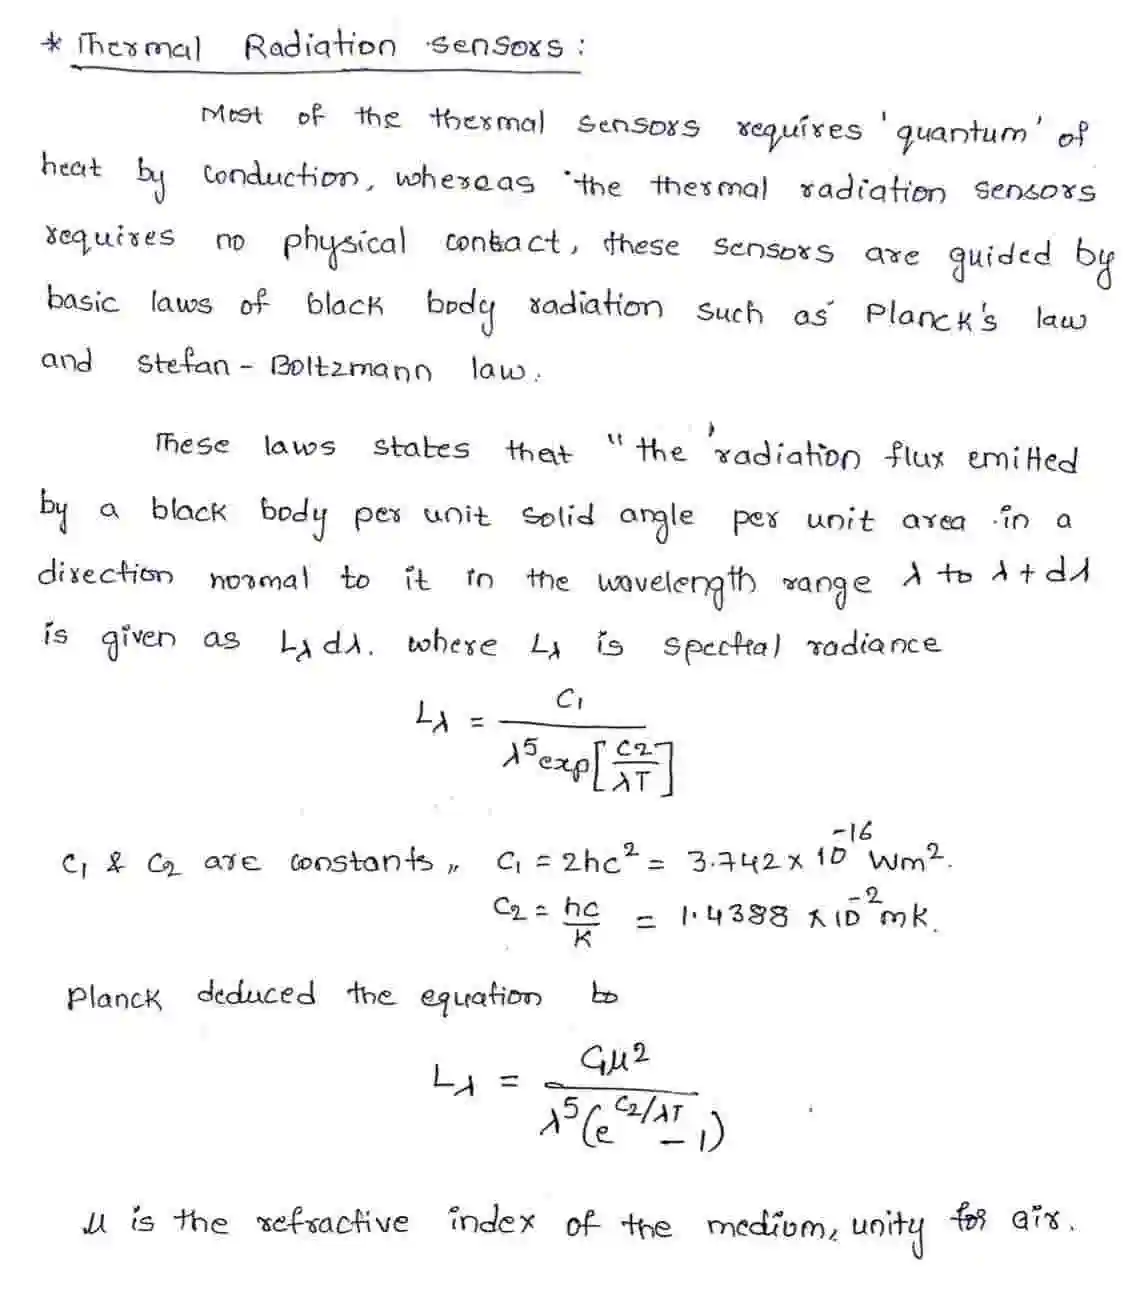 * Thermal Radiation sensors :
Most of the thermal sensors requires 'quantum' of
heat by conduction, whereas the thermal radiation sensors
requires no physical contact, these sensors are guided by
basic laws of black body radiation such as Planck's law
and stefan - Boltzmann law.
These laws states that "the radiation flux emitted
by a black body per unit solid angle per unit area in a
direction normal to it in the wavelength range λ to λ + dλ
is given as Lλ dλ. where Lλ is spectral radiance
Lλ = C1 / λ^5 exp[C2/λT]
C1 & C2 are constants,, C1 = 2hc² = 3.742 x 10^-16 Wm².
C2 = hc/K = 1.4388 x 10^-2 mk.
Planck deduced the equation to
Lλ = C1μ² / λ^5 (e^C2/λT - 1)
μ is the refractive index of the medium, unity for air.